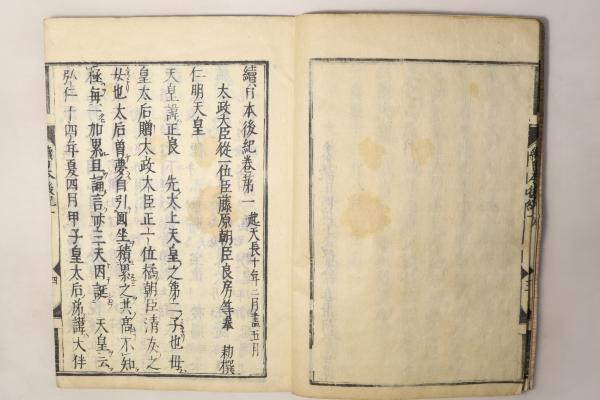 續日本後紀卷第一 起天長十年二月盡五月
太政大臣從一位臣藤原朝臣良房等奉 勅撰
仁明天皇
天皇諱正良 先太上天皇之第二子也母
皇太后贈太政大臣正一位橘朝臣清友之
女也太后曽夢自引圓坐積累之其高不知
極每一加累且誦言卅三天因誕 天皇云
弘仁十四年夏四月甲子皇太后弟諱大伴
續日本後紀一
四